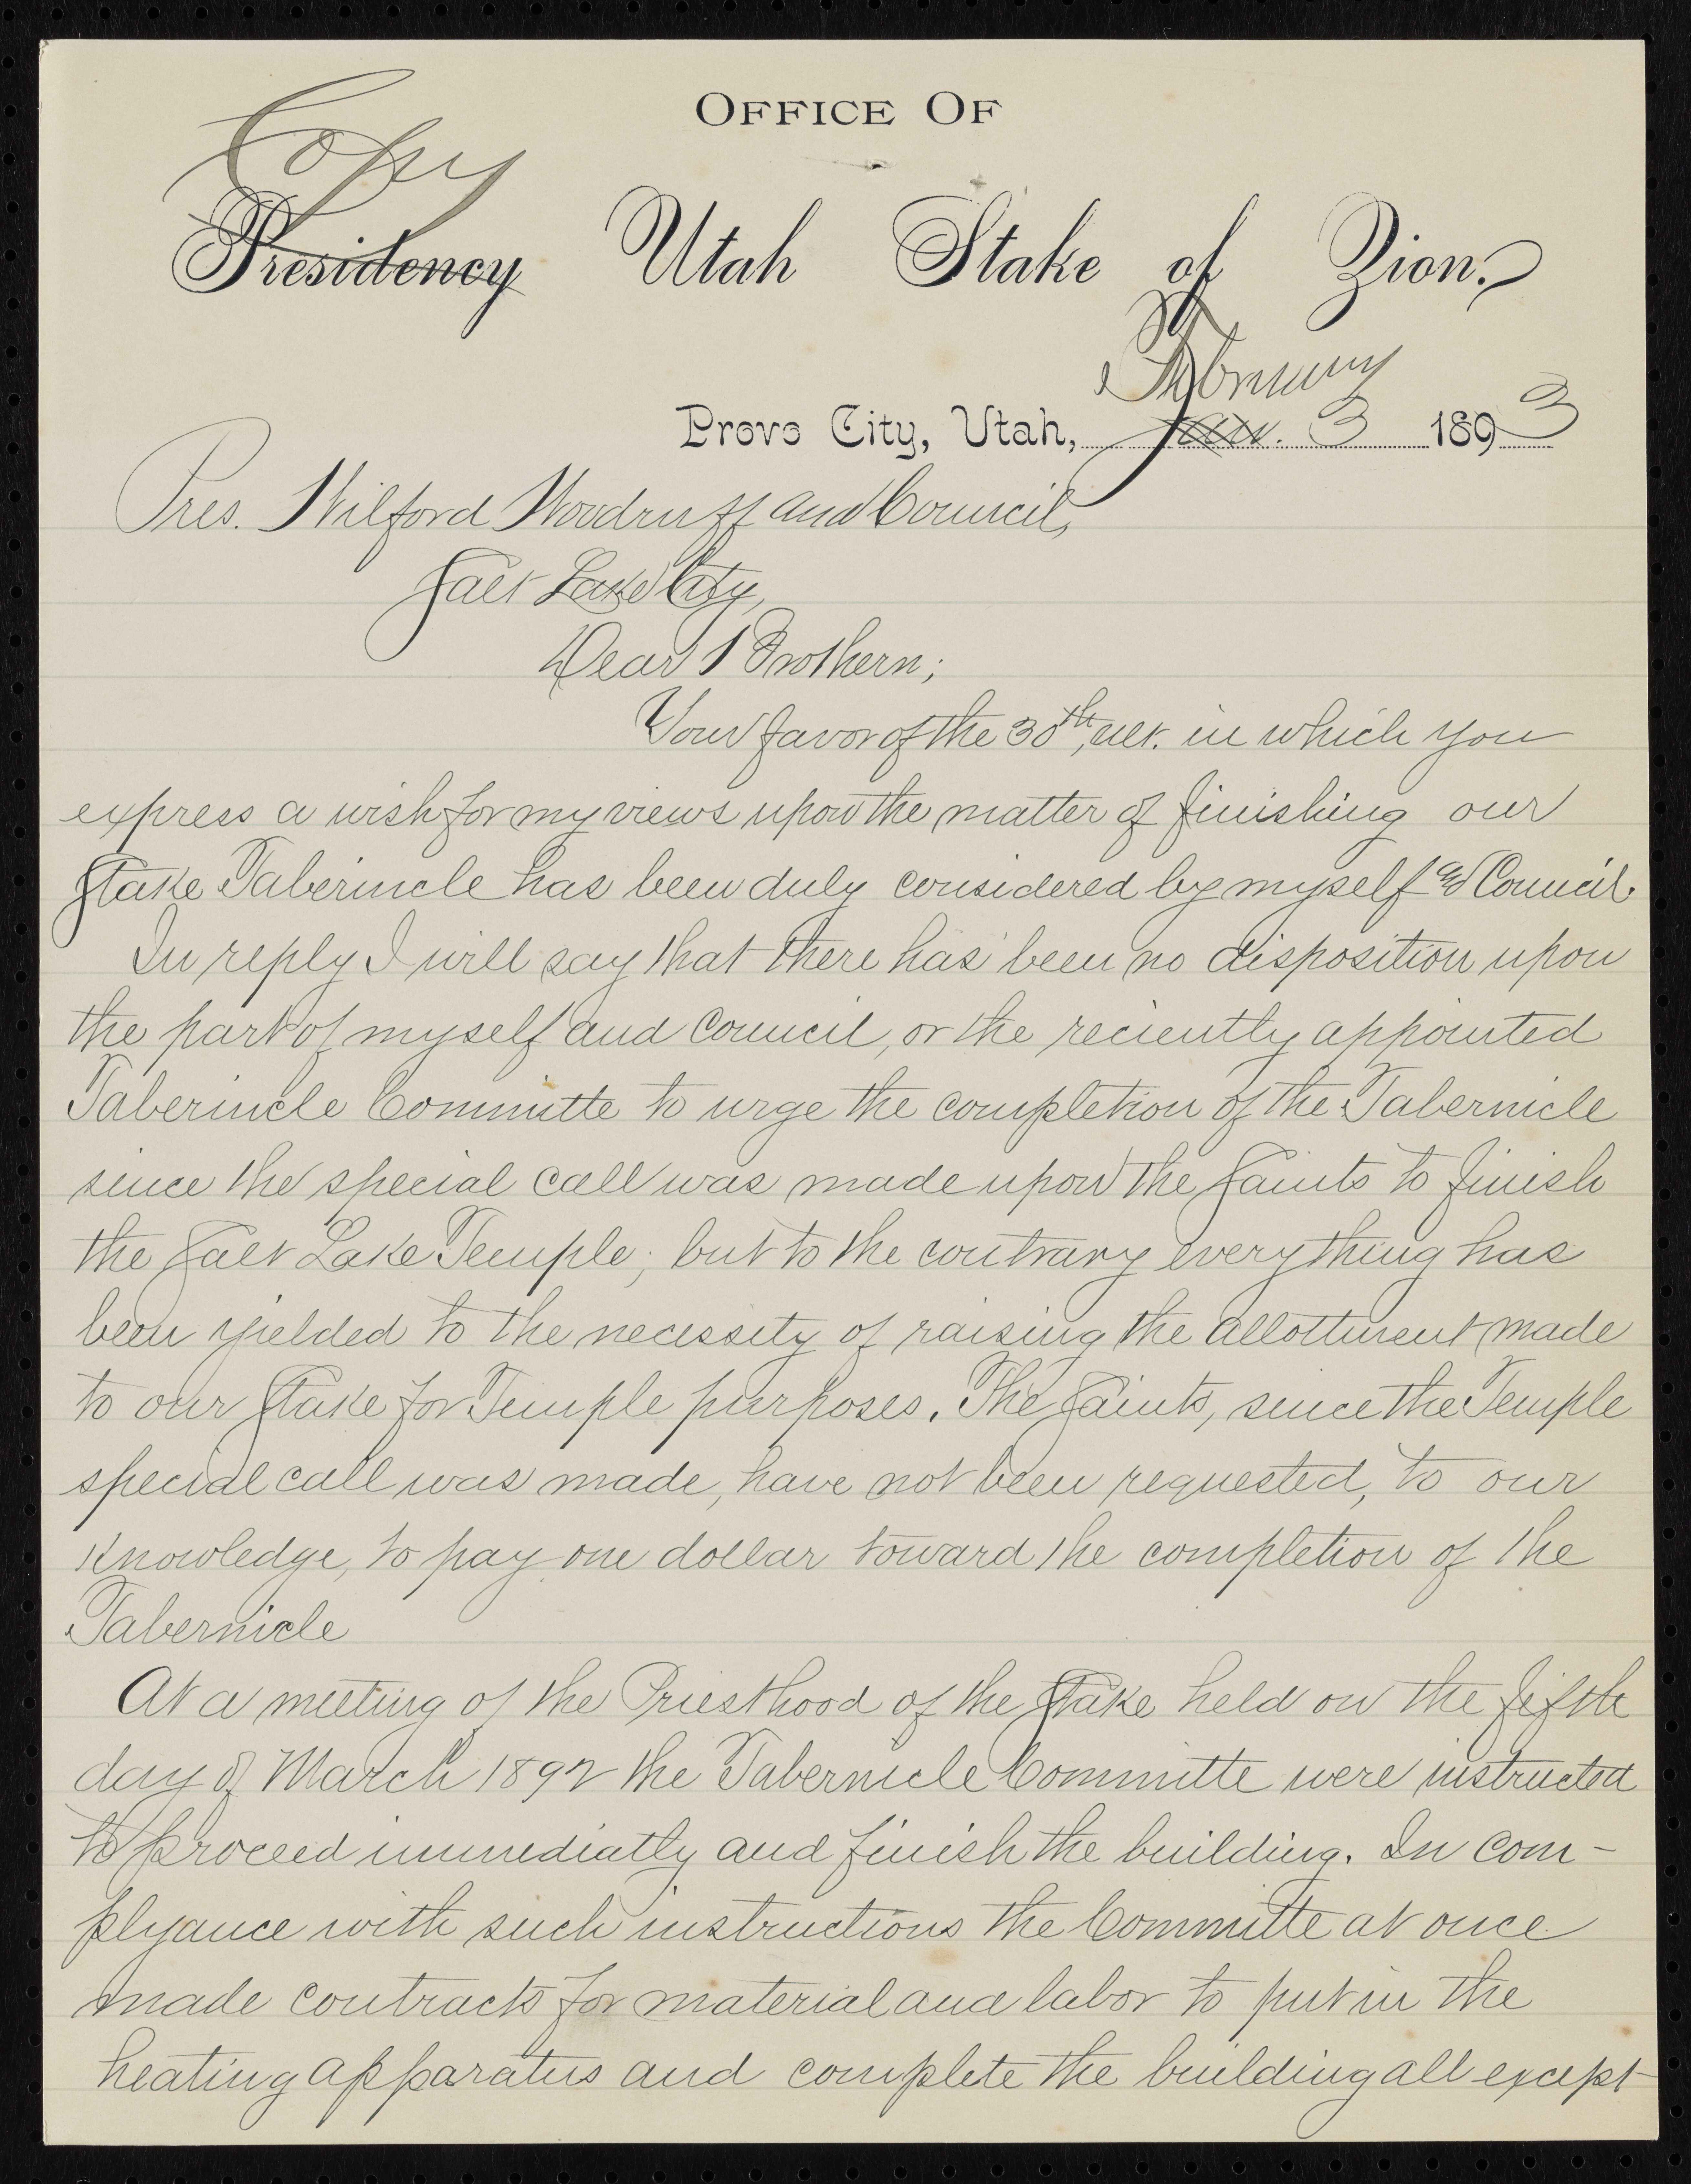 Copy
OFFICE OF
Presidency Utah Stake of Zion.
February
Provo City, Utah, Jan. 3 1893
Pres. Wilford Woodruff and Council,
Salt Lake City,
Dear Brothern;
Your favor of the 30th, ult. in which you
express a wish for my views upon the matter of finishing our
Stake Tabernicle has been duly considered by myself & Council.
In reply I will say that there has been no disposition upon
the part of myself and Council, or the reciently appointed
Tabernicle Committe to urge the completion of the Tabernicle
since the special call was made upon the Saints to finish
the Salt Lake Temple; but to the contrary everything has
been yielded to the necessity of raising the allottment made
to our Stake for Temple purposes. The Saints, since the Temple
special call was made, have not been requested, to our
knowledge, to pay one dollar toward the completion of the
Tabernicle
At a meeting of the Priesthood of the Stake held on the fifth
day of March 1892 the Tabernicle Committe were instructed
to proceed immediatly and finish the building. In com-
plyance with such instructions the Committe at once
made contracts for material and labor to put in the
heating apparatus and complete the building all except